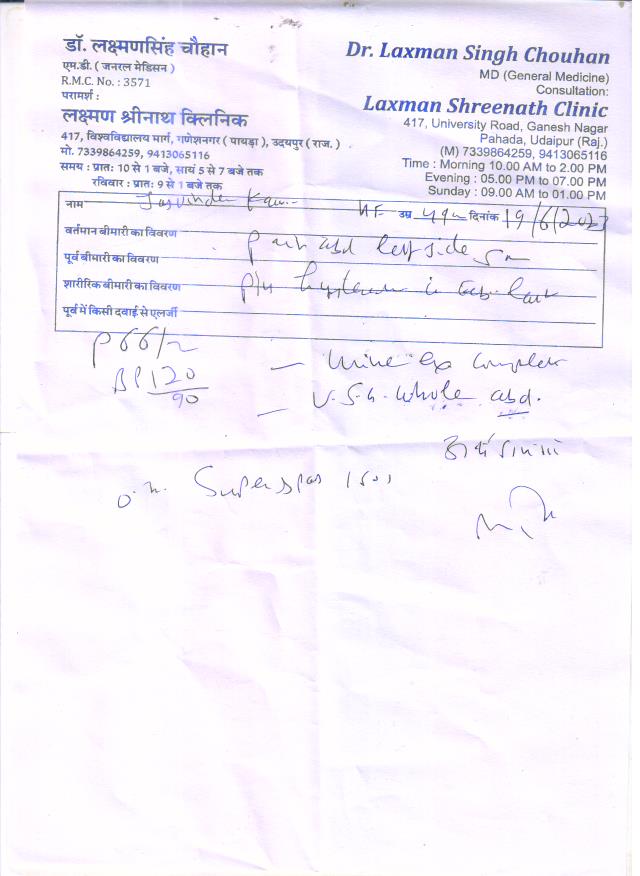 डॉ. लक्ष्मणसिंह चौहान
एम.डी. ( जनरल मेडिसन )
R.M.C. No. : 3571
परामर्श :
लक्ष्मण श्रीनाथ क्लिनिक
417, विश्वविद्यालय मार्ग, गणेशनगर ( पायड़ा ), उदयपुर ( राज. )
मो. 7339864259, 9413065116
समय : प्रातः 10 से 1 बजे, सायं 5 से 7 बजे तक
रविवार : प्रातः 9 से 1 बजे तक
Dr. Laxman Singh Chouhan
MD (General Medicine)
Consultation:
Laxman Shreenath Clinic
417, University Road, Ganesh Nagar
Pahada, Udaipur (Raj.)
(M) 7339864259, 9413065116
Time : Morning 10.00 AM to 2.00 PM
Evening : 05.00 PM to 07.00 PM
Sunday : 09.00 AM to 01.00 PM
नाम Jasvinder Kaur उम्र दिनांक 19/6/2023
वर्तमान बीमारी का विवरण Pain abd left side
पूर्व बीमारी का विवरण
शारीरिक बीमारी का विवरण
पूर्व में किसी दवाई से एलर्जी
P 66/m
BP 120/90
— Urine ex complete
— U.S.G. whole abd.